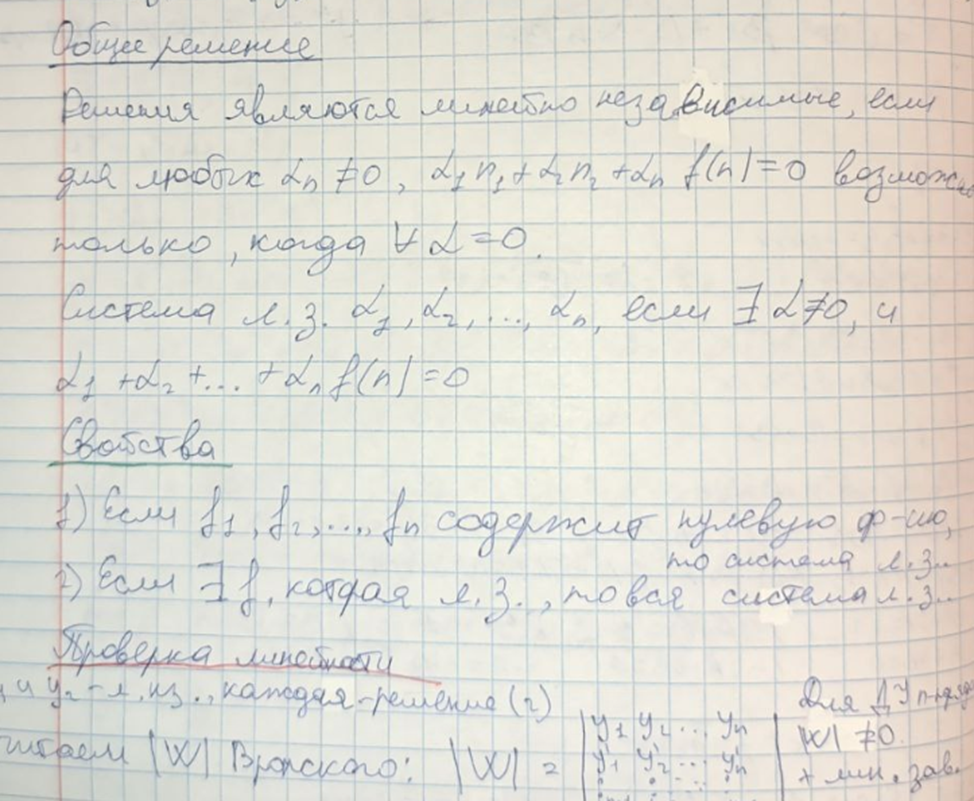 Общее решение
Решения являются линейно независимые, если
для любых αₙ ≠ 0, α₁n₁ + α₂n₂ + αₙ f(n) = 0 возможно
только, когда ∀ α = 0.
Система л.з. α₁, α₂, ..., αₙ, если ∃ α ≠ 0, и
α₁ + α₂ + ... + αₙ f(n) = 0
Свойства
1) Если f₁, f₂, ..., fₙ содержит нулевую ф-ию,
то система л.з..
2) Если ∃ f, которая л.з., то вся система л.з..
Проверка линейности
и y₂ - л.нз., каждая - решение (2)
Для ДУ n-
читаем |W| Вронского: |W| = | y₁ y₂ ... yₙ |
|W| ≠ 0.
| y₁' y₂' ... yₙ' |
+ лин. зав.